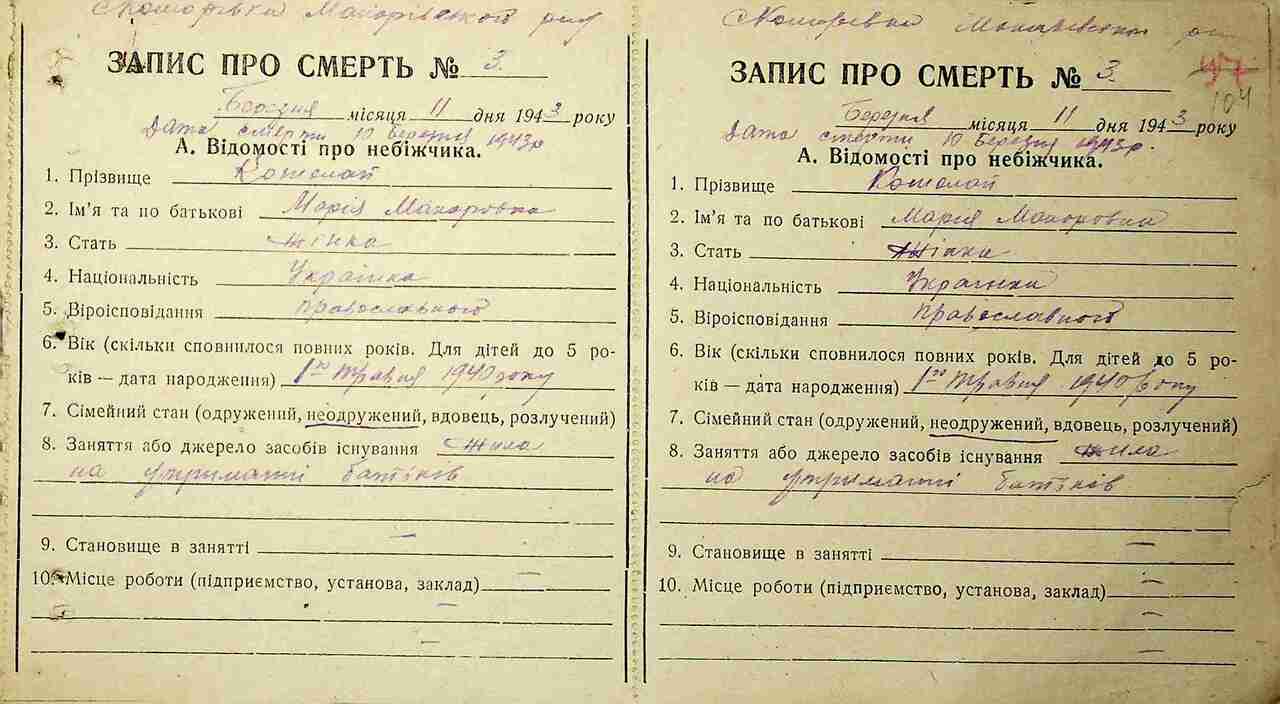 Комарівка Макарівського р-ну
ЗАПИС ПРО СМЕРТЬ № 3.
Березня місяця 11 дня 1943 року
Дата смерти 10 березня 1943р
А. Відомості про небіжчика.
1. Прізвище Кошолап
2. Ім'я та по батькові Марія Макаровна
3. Стать жінка
4. Національність Українка
5. Віроісповідання православного
6. Вік (скільки сповнилося повних років. Для дітей до 5 ро-
ків — дата народження) 1го травня 1940 року
7. Сімейний стан (одружений, неодружений, вдовець, розлучений)
8. Заняття або джерело засобів існування жила
на утриманні батьків
9. Становище в занятті —
10. Місце роботи (підприємство, установа, заклад) —
—
—
Комарівка
ЗАПИС ПРО СМЕРТЬ № 3.
104
Березня місяця 11 дня 1943 року
Дата смерти 10 березня 1943р.
А. Відомості про небіжчика.
1. Прізвище Кошолап
2. Ім'я та по батькові Мария Макаровна
3. Стать жінка
4. Національність Українка
5. Віроісповідання православного
6. Вік (скільки сповнилося повних років. Для дітей до 5 ро-
ків — дата народження) 1го травня 1940 року
7. Сімейний стан (одружений, неодружений, вдовець, розлучений)
8. Заняття або джерело засобів існування жила
на утриманні батьків
9. Становище в занятті —
10. Місце роботи (підприємство, установа, заклад) —
—
—